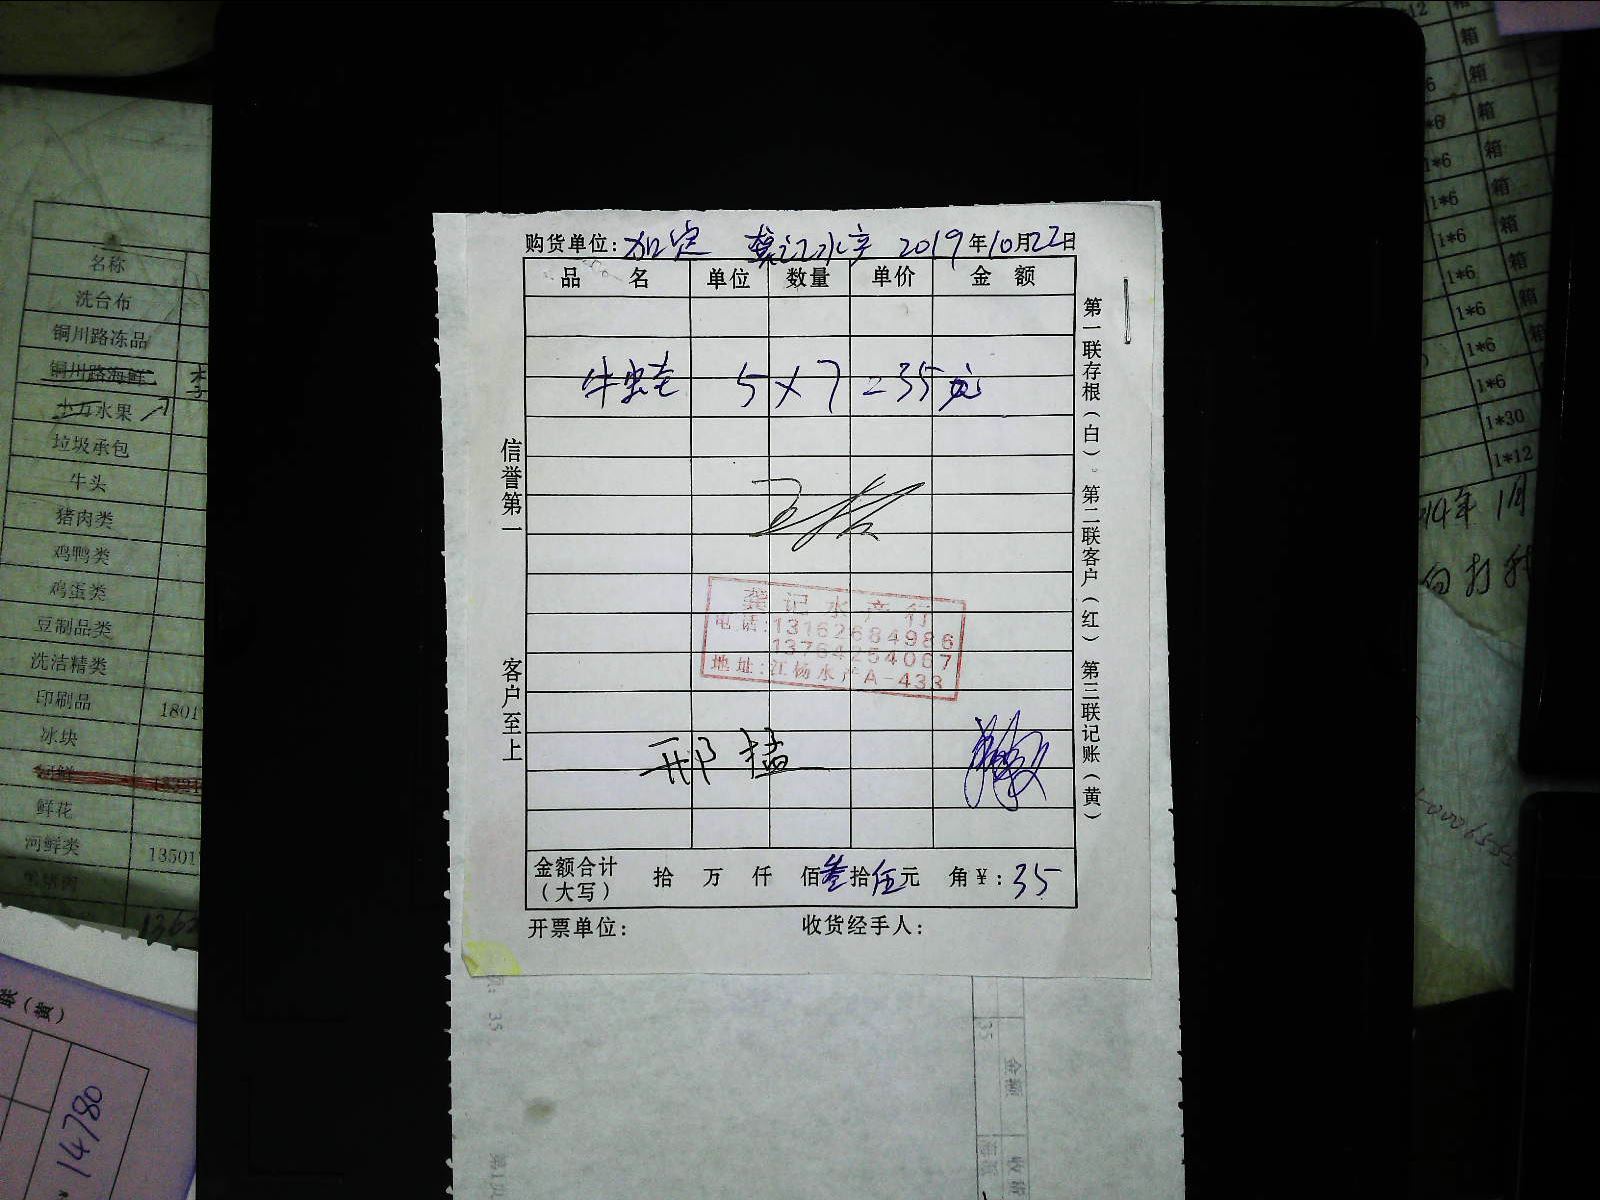 购货单位: 加定 龚记水产 2019年10月22日
品 名 单位 数量 单价 金 额
牛蛙 5×7=35元
龚记水产行
电话:13162684986
13764254067
地址:江杨水产A-433
邢猛
金额合计(大写) 拾 万 仟 佰叁拾伍元 角¥:35
开票单位: 收货经手人:
信誉第一 客户至上
第一联存根(白)。第二联客户(红) 第三联记账(黄)
名称
洗台布
铜川路冻品
铜川路海鲜
水果
垃圾承包
牛头
猪肉类
鸡鸭类
鸡蛋类
豆制品类
洗洁精类
印刷品 1801
冰块
河鲜
鲜花
河鲜类 13501
联(黄)
14780
箱
箱
1*6 箱
1*6 箱
1*6 箱
1*6 箱
1*6 箱
1*6 箱
1*6
1*6
1*30
1*12
35
35
金额